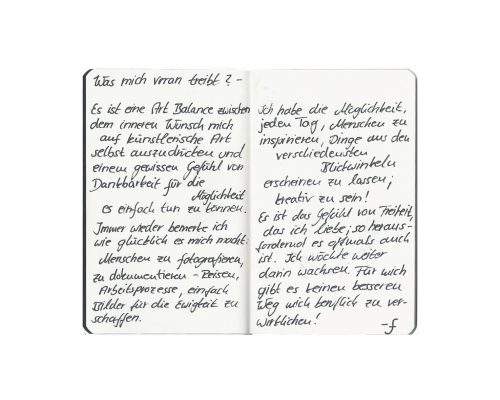 Was mich voran treibt? -
Es ist eine Art Balance zwischen
dem inneren Wunsch mich
auf künstlerische Art
selbst auszudrücken und
einem gewissen Gefühl von
Dankbarkeit für die
Möglichkeit
es einfach tun zu können.
Immer wieder bemerke ich
wie glücklich es mich macht
Menschen zu fotografieren,
zu dokumentieren - Reisen,
Arbeitsprozesse, einfach
Bilder für die Ewigkeit zu
schaffen.
Ich habe die Möglichkeit,
jeden Tag, Menschen zu
inspirieren, Dinge aus den
verschiedensten
Blickwinkeln
erscheinen zu lassen;
kreativ zu sein!
Es ist das Gefühl von Freiheit,
das ich liebe; so heraus-
fordernd es oftmals auch
ist. Ich möchte weiter
darin wachsen. Für mich
gibt es keinen besseren
Weg mich beruflich zu ver-
wirklichen!
-f